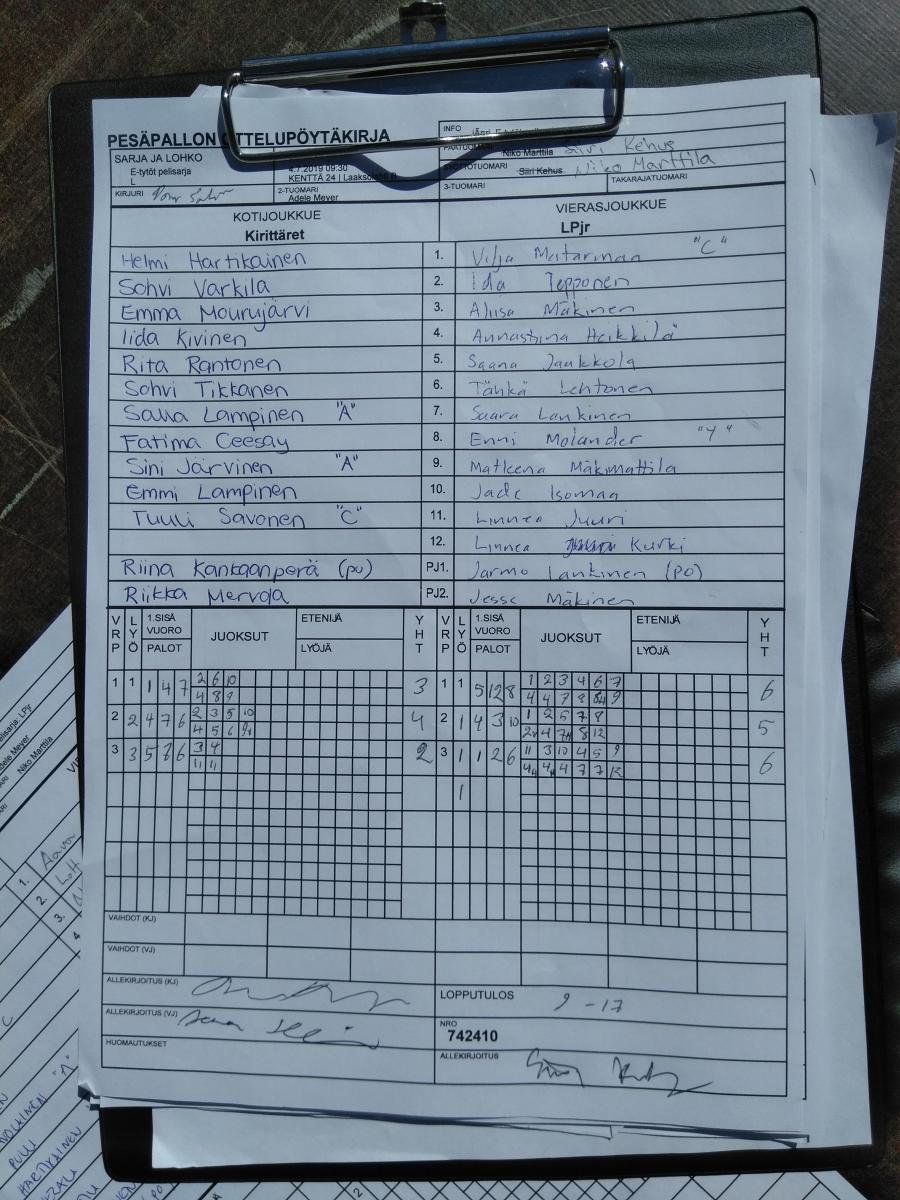 PESÄPALLON OTTELUPÖYTÄKIRJA
INFO
SARJA JA LOHKO
E-tytöt pelisarja
L
4.7.2019 09:30
KENTTÄ 24 | Laaksolahti B
Niko Marttila Siiri Kehus
Siiri Kehus Niko Marttila
KIRJURI
2-TUOMARI
Adele Meyer
3-TUOMARI
TAKARAJATUOMARI
KOTIJOUKKUE
Kirittäret
VIERASJOUKKUE
LPjr
Helmi Hartikainen 1. Vilja Matarmaa "C"
Sohvi Varkila 2. Ida Tepponen
Emma Mourujärvi 3. Aliisa Mäkinen
Iida Kivinen 4. Annastiina Heikkilä
Rita Rantonen 5. Saana Jaakkola
Sohvi Tikkanen 6. Tähkä Lehtonen
Salla Lampinen "A" 7. Saara Lankinen
Fatima Ceesay 8. Enni Molander "Y"
Sini Järvinen "A" 9. Matleena Mäkimattila
Emmi Lampinen 10. Jade Isomaa
Tuuli Savonen "C" 11. Linnea Juuri
12. Linnea Kurki
Riina Kankaanperä (po) PJ1. Jarmo Lankinen (PO)
Riikka Mervola PJ2. Jesse Mäkinen
VRP LYÖ 1.SISÄ VUORO PALOT JUOKSUT ETENIJÄ LYÖJÄ YHT VRP LYÖ 1.SISÄ VUORO PALOT JUOKSUT ETENIJÄ LYÖJÄ YHT
1 1 1 4 7 2 6 10 3 1 1 5 12 8 1 2 3 4 6 7 6
4 8 9 4 4 7 8 9
2 2 4 7 6 2 3 5 10 4 2 1 4 3 10 1 2 5 7 8 5
4 5 6 4 8 12
3 3 5 6 3 4 2 3 1 1 2 6 11 3 10 4 5 9 6
11 11 4 7 7 12
1
VAIHDOT (KJ)
VAIHDOT (VJ)
ALLEKIRJOITUS (KJ)
LOPPUTULOS 9 - 17
ALLEKIRJOITUS (VJ)
NRO
742410
HUOMAUTUKSET
ALLEKIRJOITUS